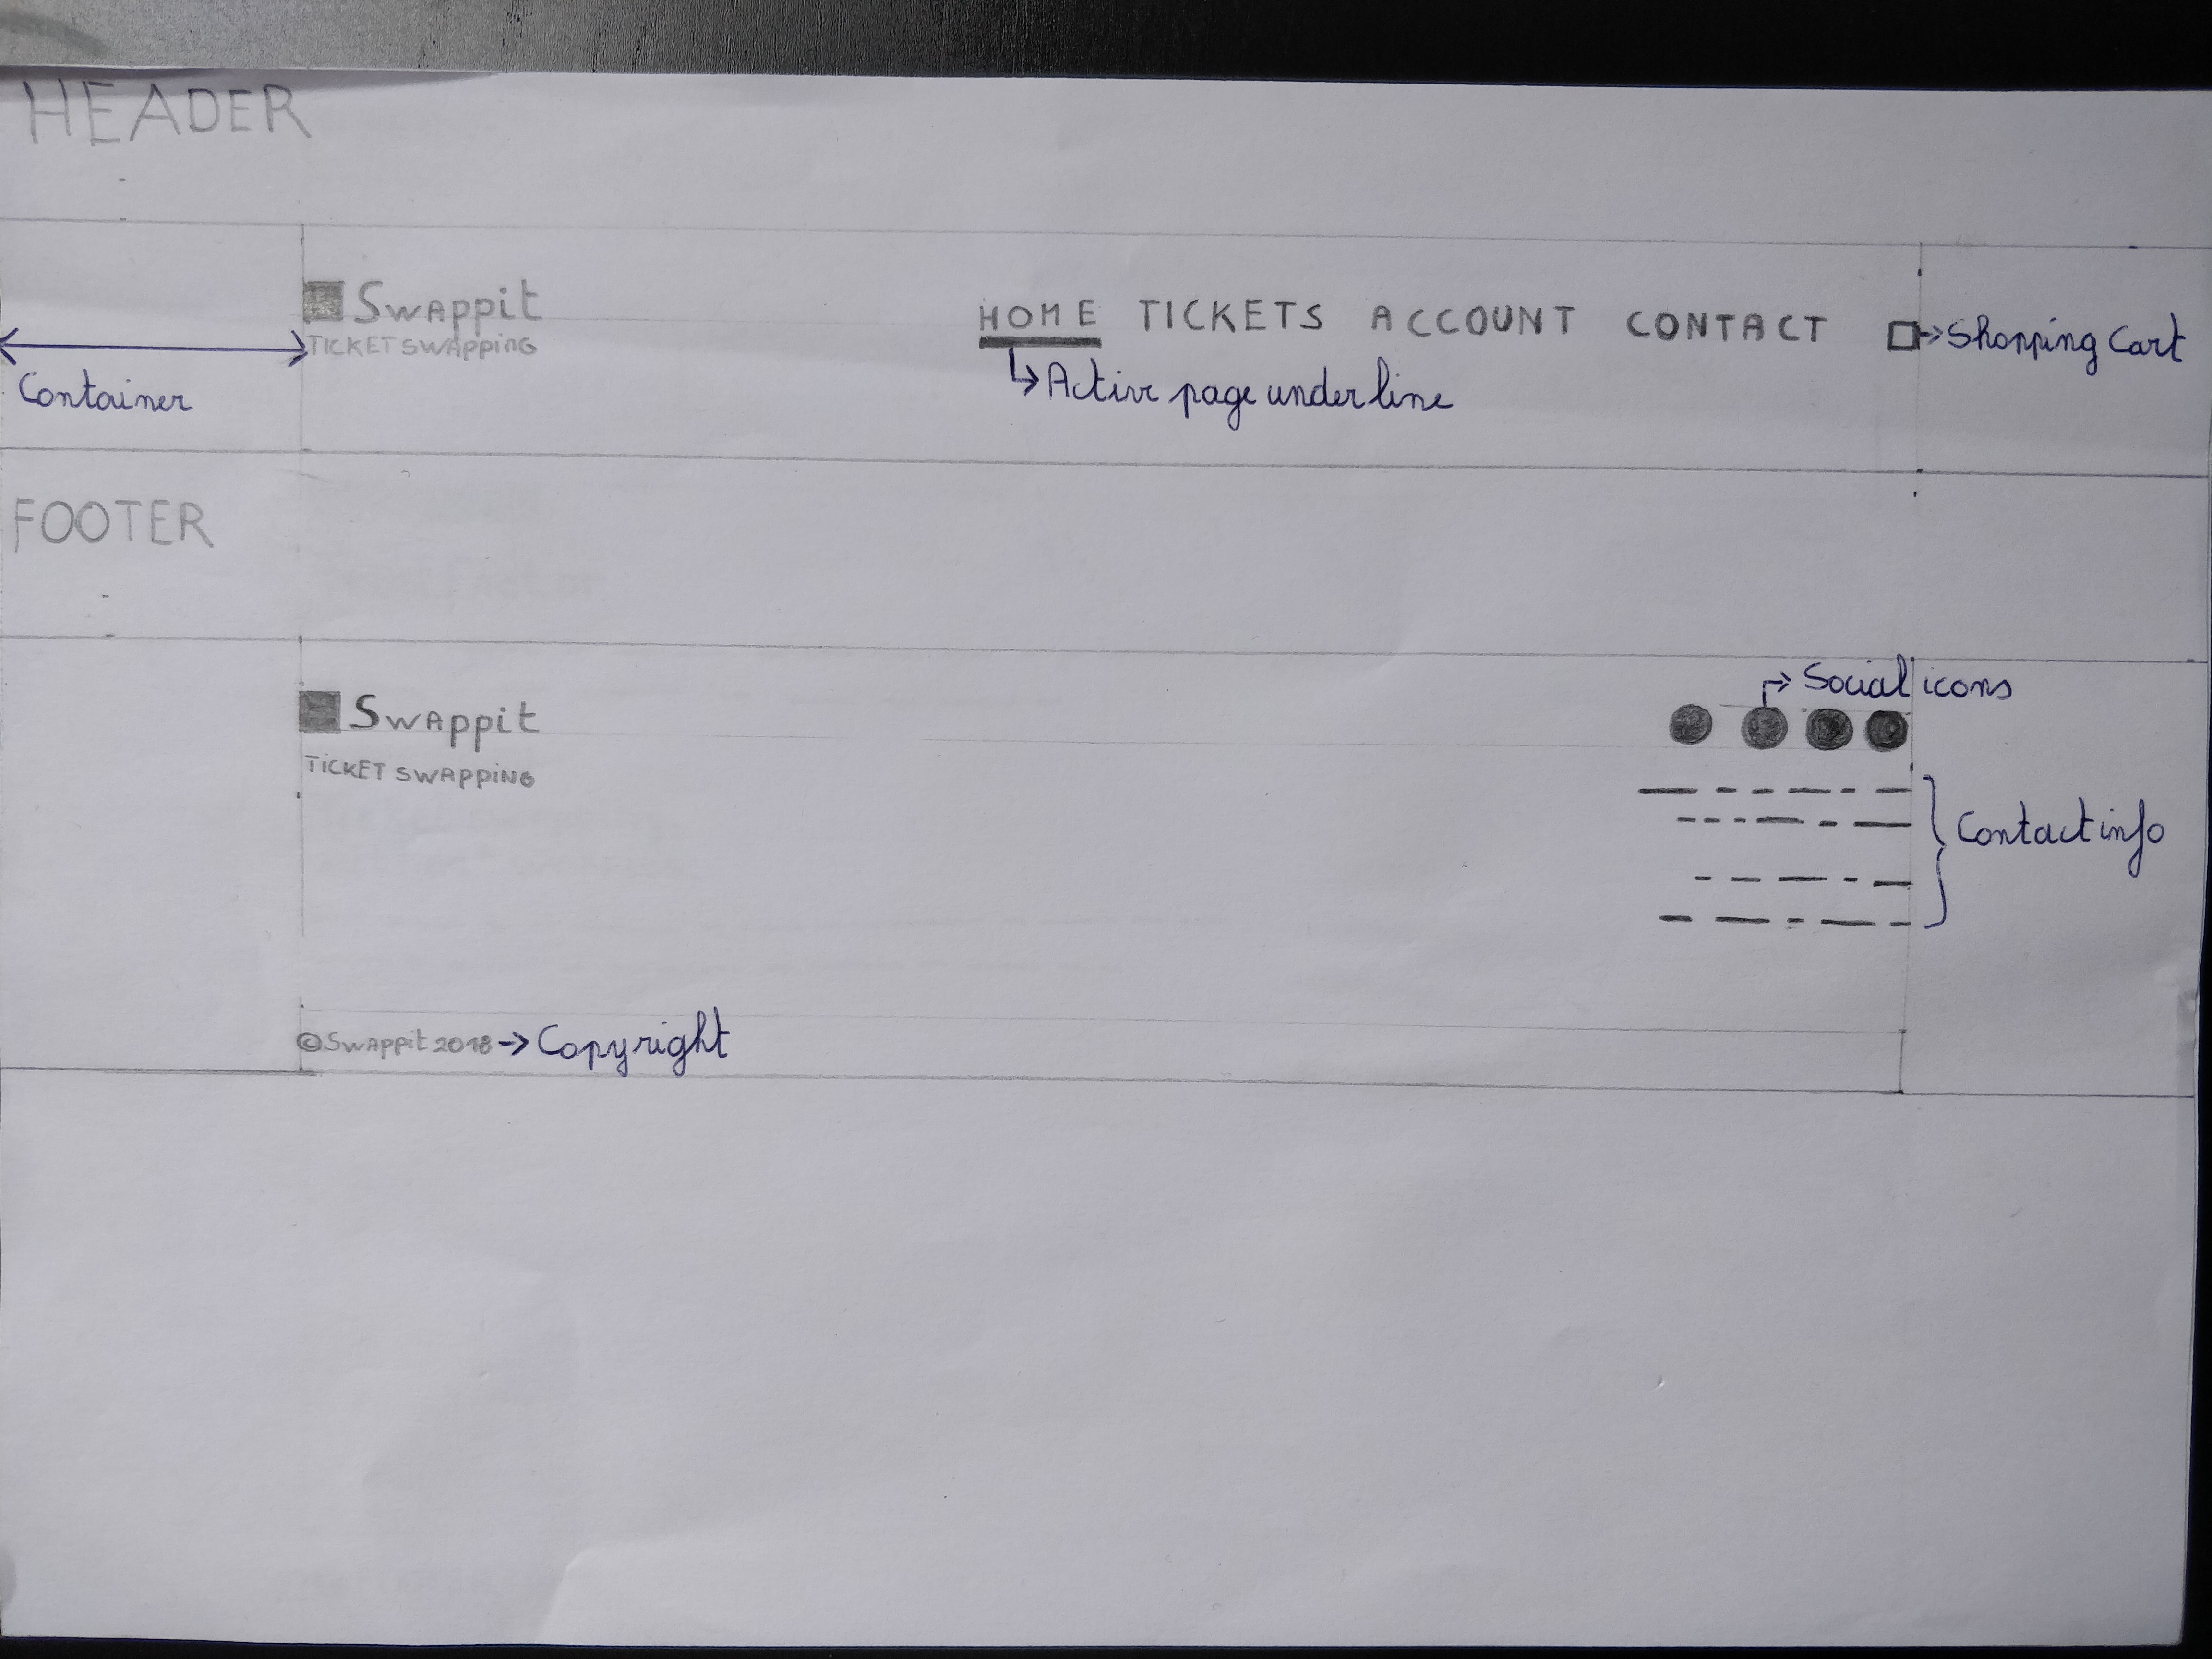 HEADER
Swappit
TICKET SWAPPING
Container
HOME TICKETS ACCOUNT CONTACT
Shopping Cart
Active page underline
FOOTER
Swappit
TICKET SWAPPING
Social icons
Contact info
©Swappit 2018 → Copyright